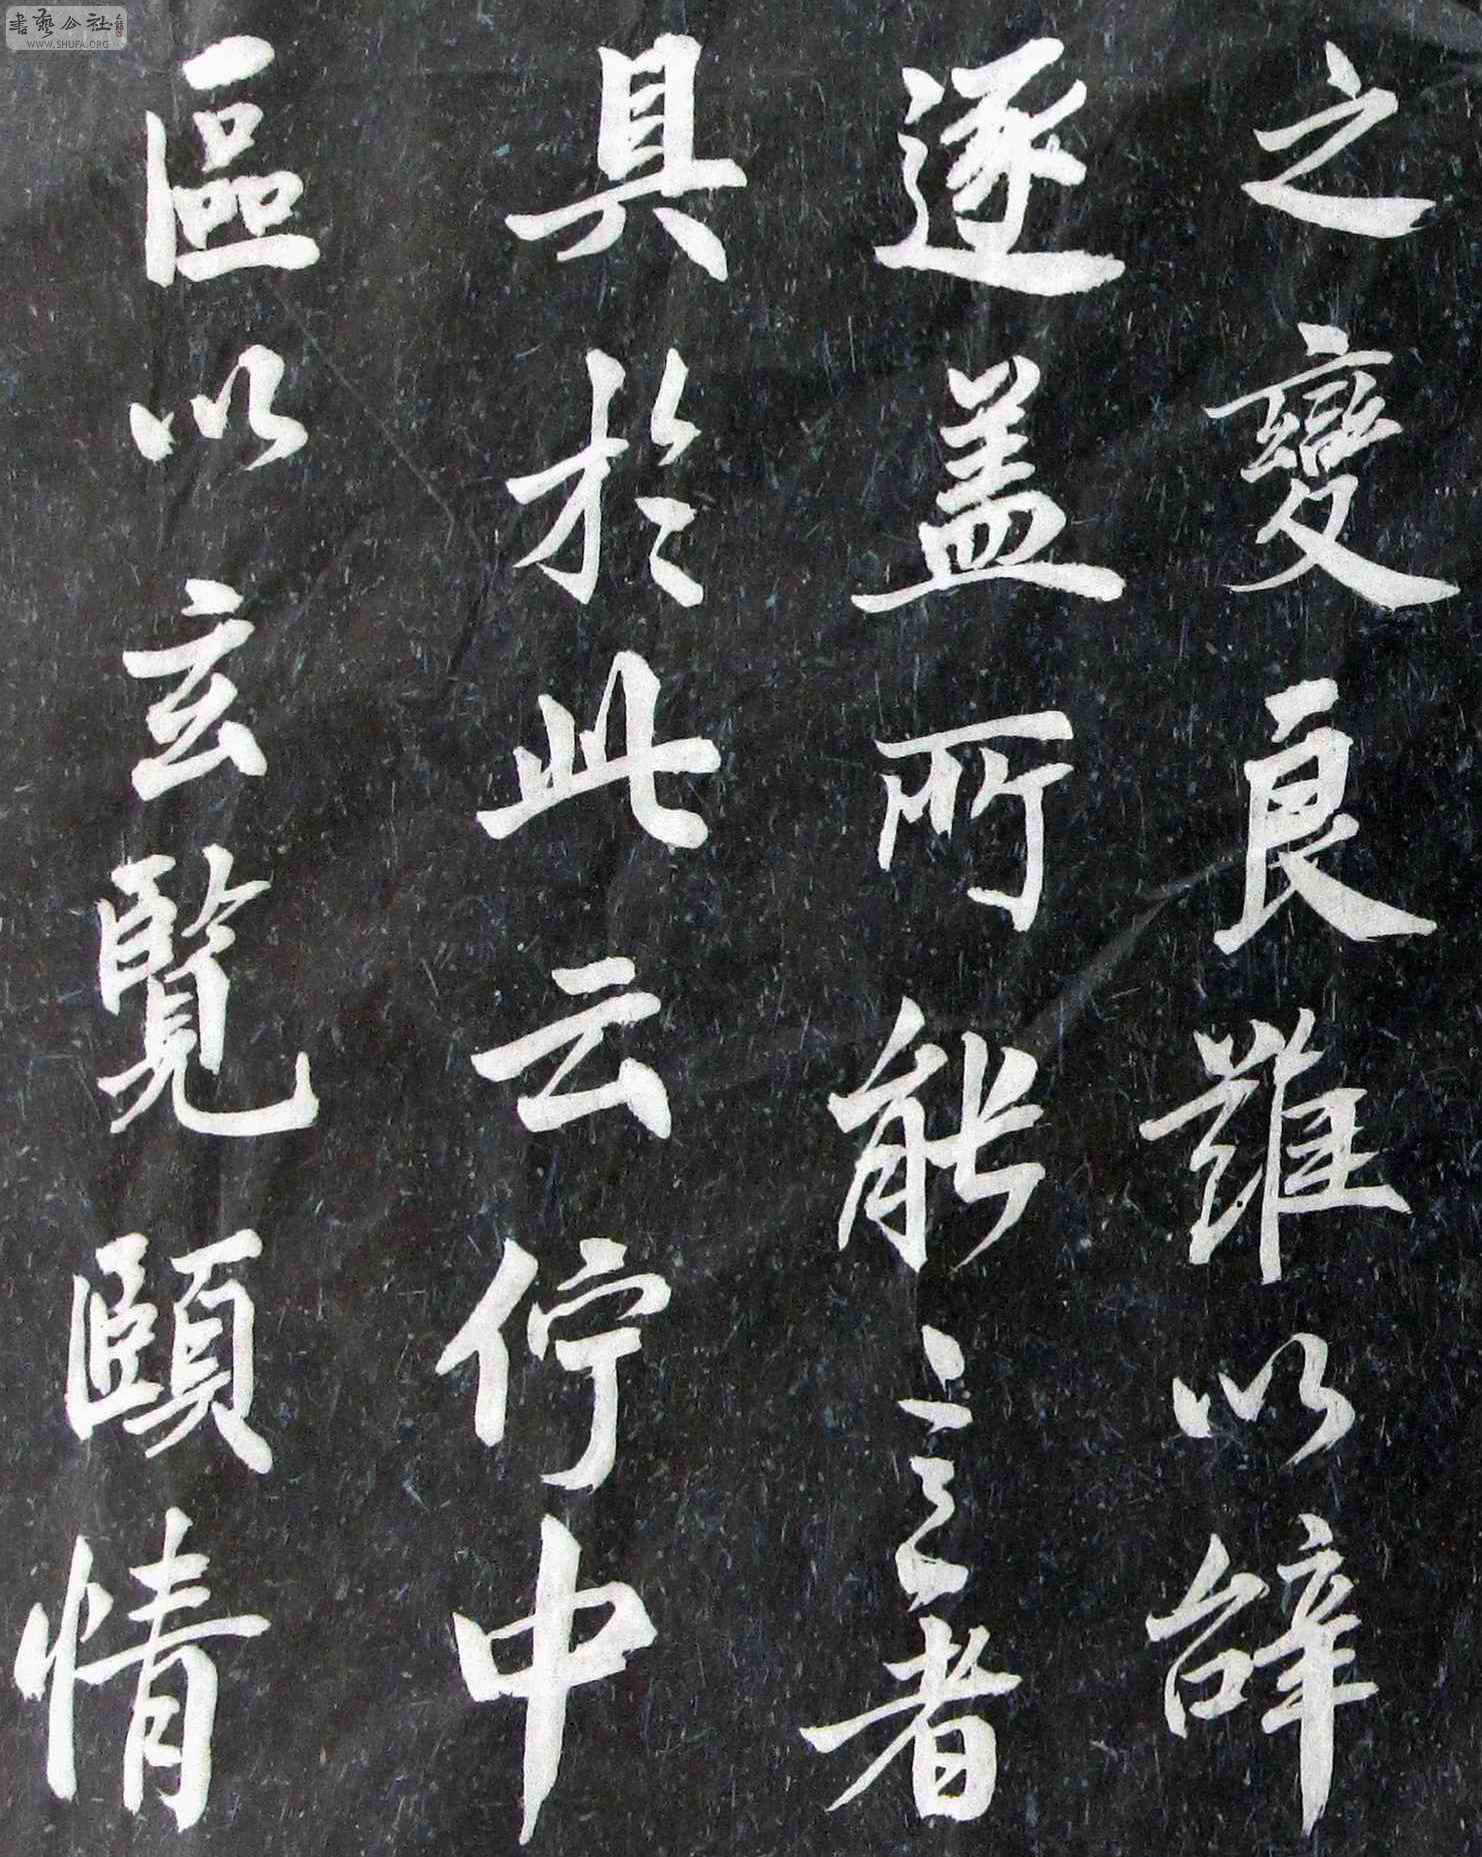 之變良難以辝
逐盖所能言者
具於此云佇中
區以玄覽頤情
書藝公社
WWW.SHUFA.ORG